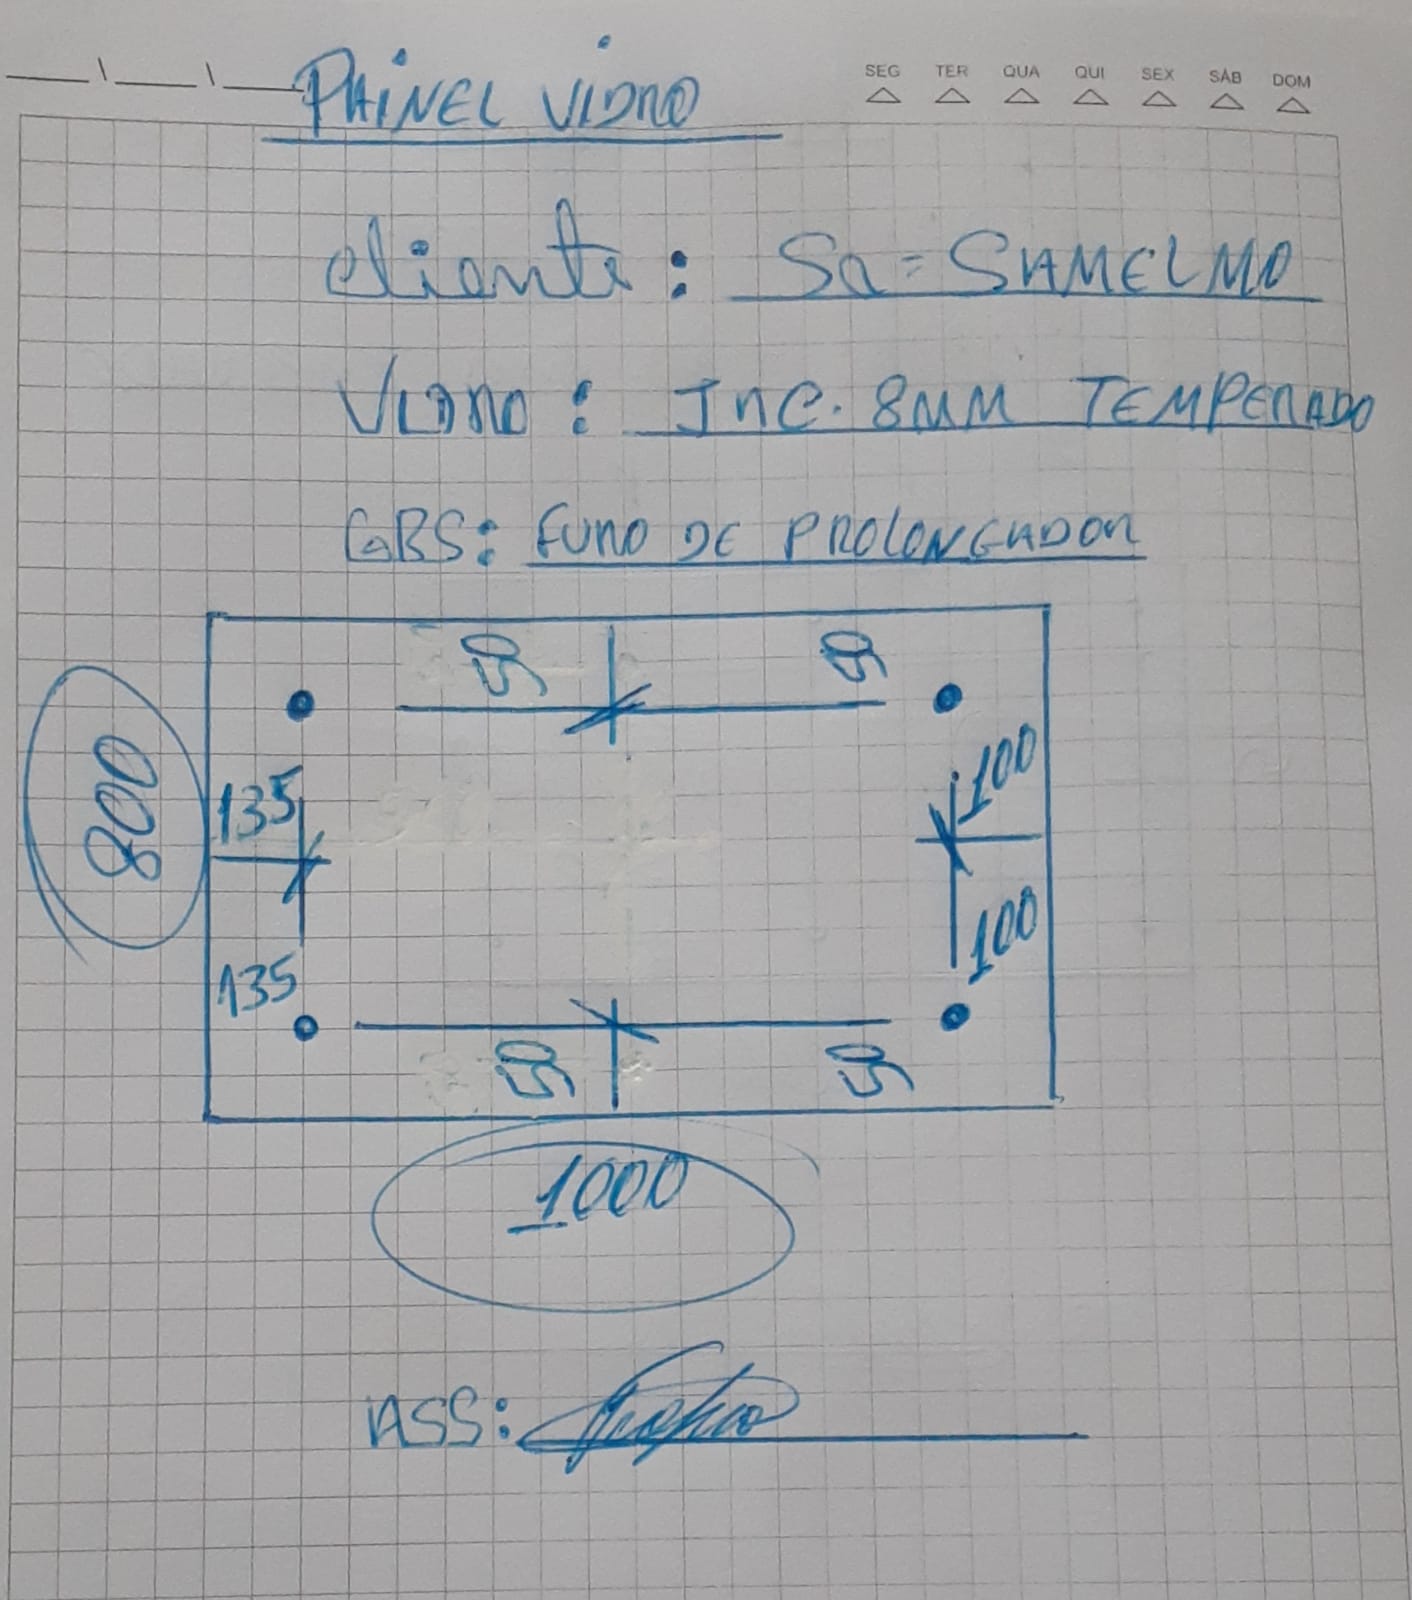 SEG TER QUA QUI SEX SÁB DOM
PAINEL VIDRO
Cliente: Sa=SAMELMO
VIDRO: INC. 8MM TEMPERADO
OBS: FURO DE PROLONGADOR
50 50
800
135 100
135 100
50 50
1000
ASS: